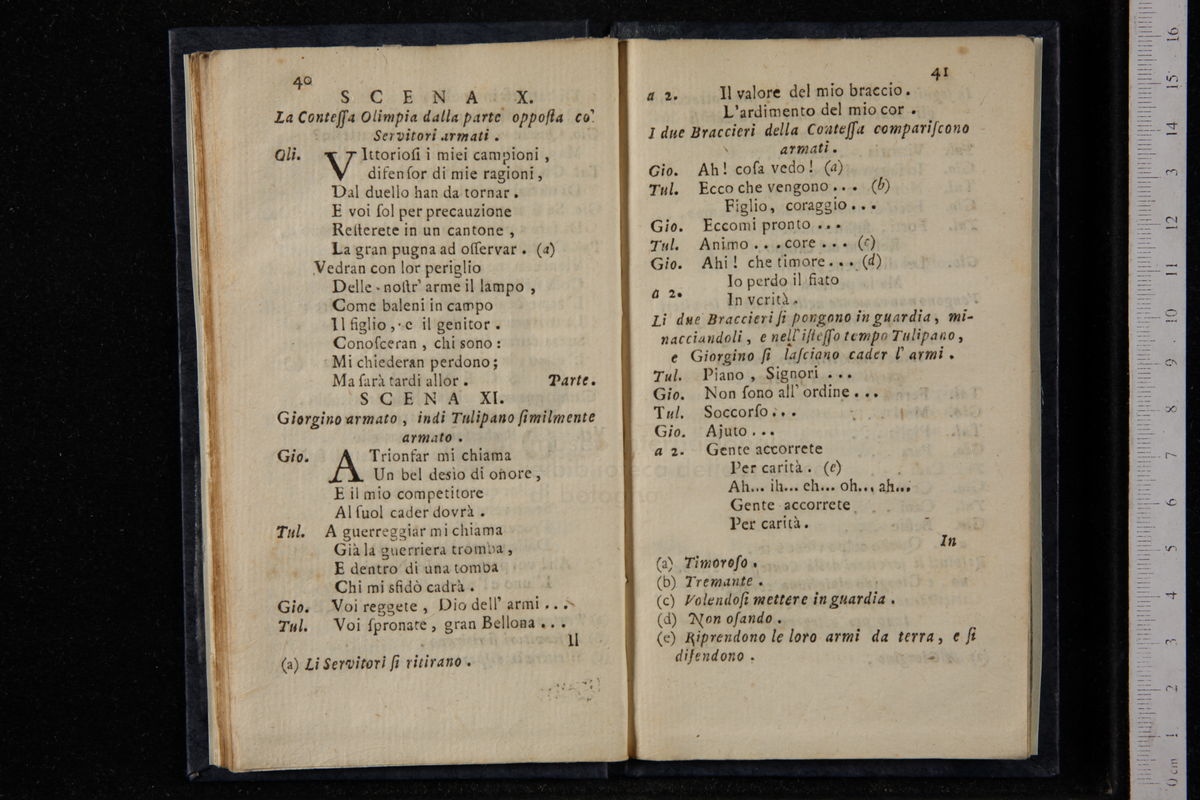 40
SCENA X.
La Conteſſa Olimpia dalla parte oppoſta co'
Servitori armati .
Oli. VIttorioſi i miei campioni ,
difenſor di mie ragioni ,
Dal duello han da tornar .
E voi ſol per precauzione
Reſterete in un cantone ,
La gran pugna ad oſſervar . (a)
Vedran con lor periglio
Delle noſtr' arme il lampo ,
Come baleni in campo
Il figlio , e il genitor .
Conoſceran , chi sono :
Mi chiederan perdono ;
Ma ſarà tardi allor . Parte.
SCENA XI.
Giorgino armato , indi Tulipano ſimilmente
armato .
Gio. A Trionfar mi chiama
Un bel desio di onore ,
E il mio competitore
Al ſuol cader dovrà .
Tul. A guerreggiar mi chiama
Già la guerriera tromba ,
E dentro di una tomba
Chi mi sfidò cadrà .
Gio. Voi reggete , Dio dell' armi ...
Tul. Voi ſpronate , gran Bellona ...
Il
(a) Li Servitori ſi ritirano .
41
a 2. Il valore del mio braccio .
L'ardimento del mio cor .
I due Braccieri della Conteſſa compariſcono
armati .
Gio. Ah ! coſa vedo ! (a)
Tul. Ecco che vengono ... (b)
Figlio, coraggio ...
Gio. Eccomi pronto ...
Tul. Animo ... core ... (c)
Gio. Ahi ! che timore ... (d)
a 2. Io perdo il fiato
In verità .
Li due Braccieri ſi pongono in guardia , mi-
nacciandoli , e nell'iſteſſo tempo Tulipano ,
e Giorgino ſi laſciano cader l' armi .
Tul. Piano , Signori ...
Gio. Non ſono all' ordine ...
Tul. Soccorſo ...
Gio. Ajuto ...
a 2. Gente accorrete
Per carità . (e)
Ah... ih... eh... oh... ah...
Gente accorrete
Per carità .
In
(a) Timoroſo .
(b) Tremante .
(c) Volendoſi mettere in guardia .
(d) Non oſando .
(e) Riprendono le loro armi da terra , e ſi
difendono .
0 cm 1 2 3 4 5 6 7 8 9 10 11 12 13 14 15 16